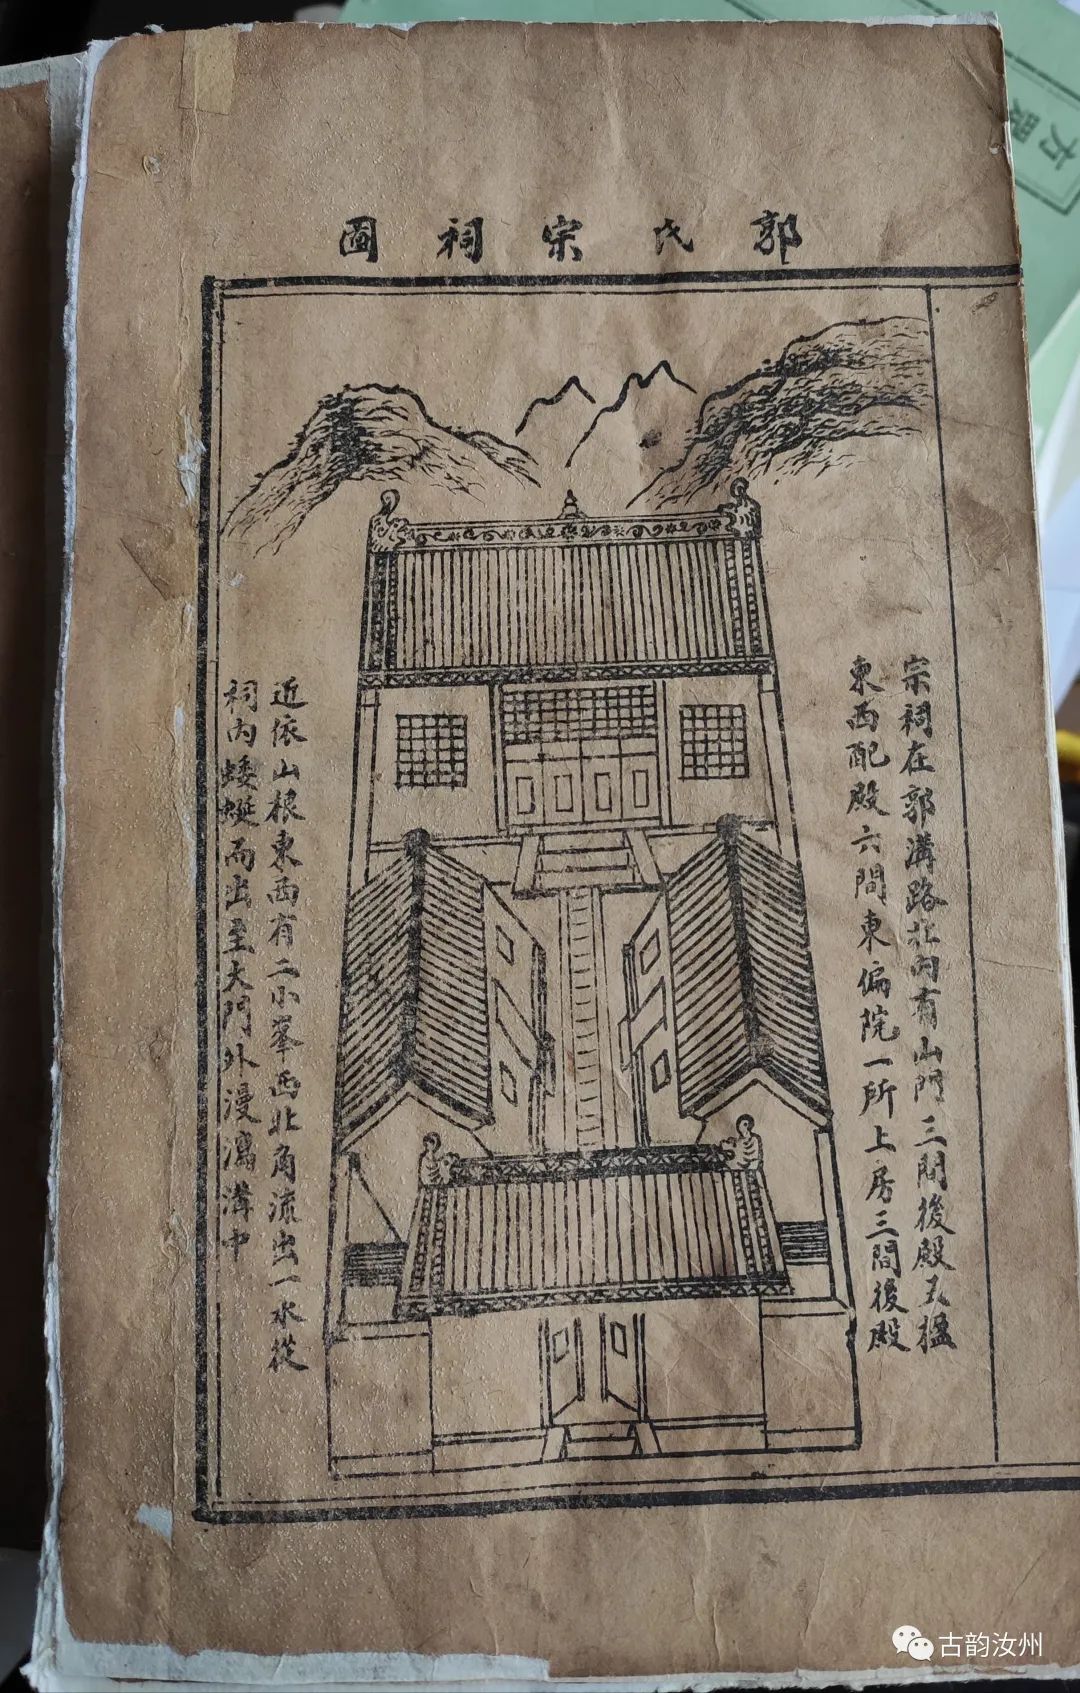 郭氏宗祠圖
宗祠在郭溝路北內有山門三間後殿五楹
東西配殿六間東偏院一所上房三間後殿
近依山根東西有二小峯西北角流出一水從
祠內蜲蜒而出至大門外漫瀉溝中
古韵汝州